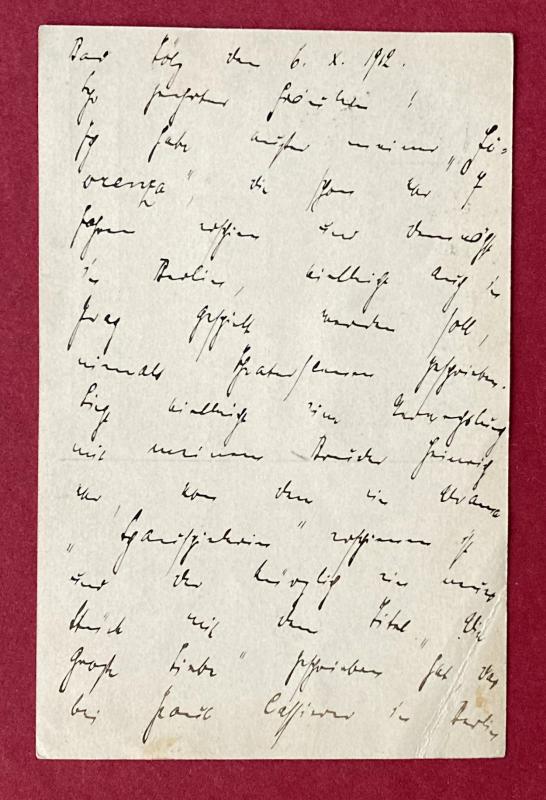 Bad Tölz den 6. X. 1912.
Sehr geehrtes Fräulein!
Ich habe außer meiner „Fi-
orenza“, die schon vor 7
Jahren erschien und demnächst
in Berlin, vielleicht auch in
Prag gespielt werden soll,
niemals Theaterszenen geschrieben.
Liegt vielleicht eine Verwechslung
mit meinem Bruder Heinrich
vor, von dem ein Drama
„Schauspielerin“ erschienen ist
und der kürzlich ein neues
Stück mit dem Titel „Die
große Liebe“ geschrieben hat das
bei Paul Cassirer in Berlin